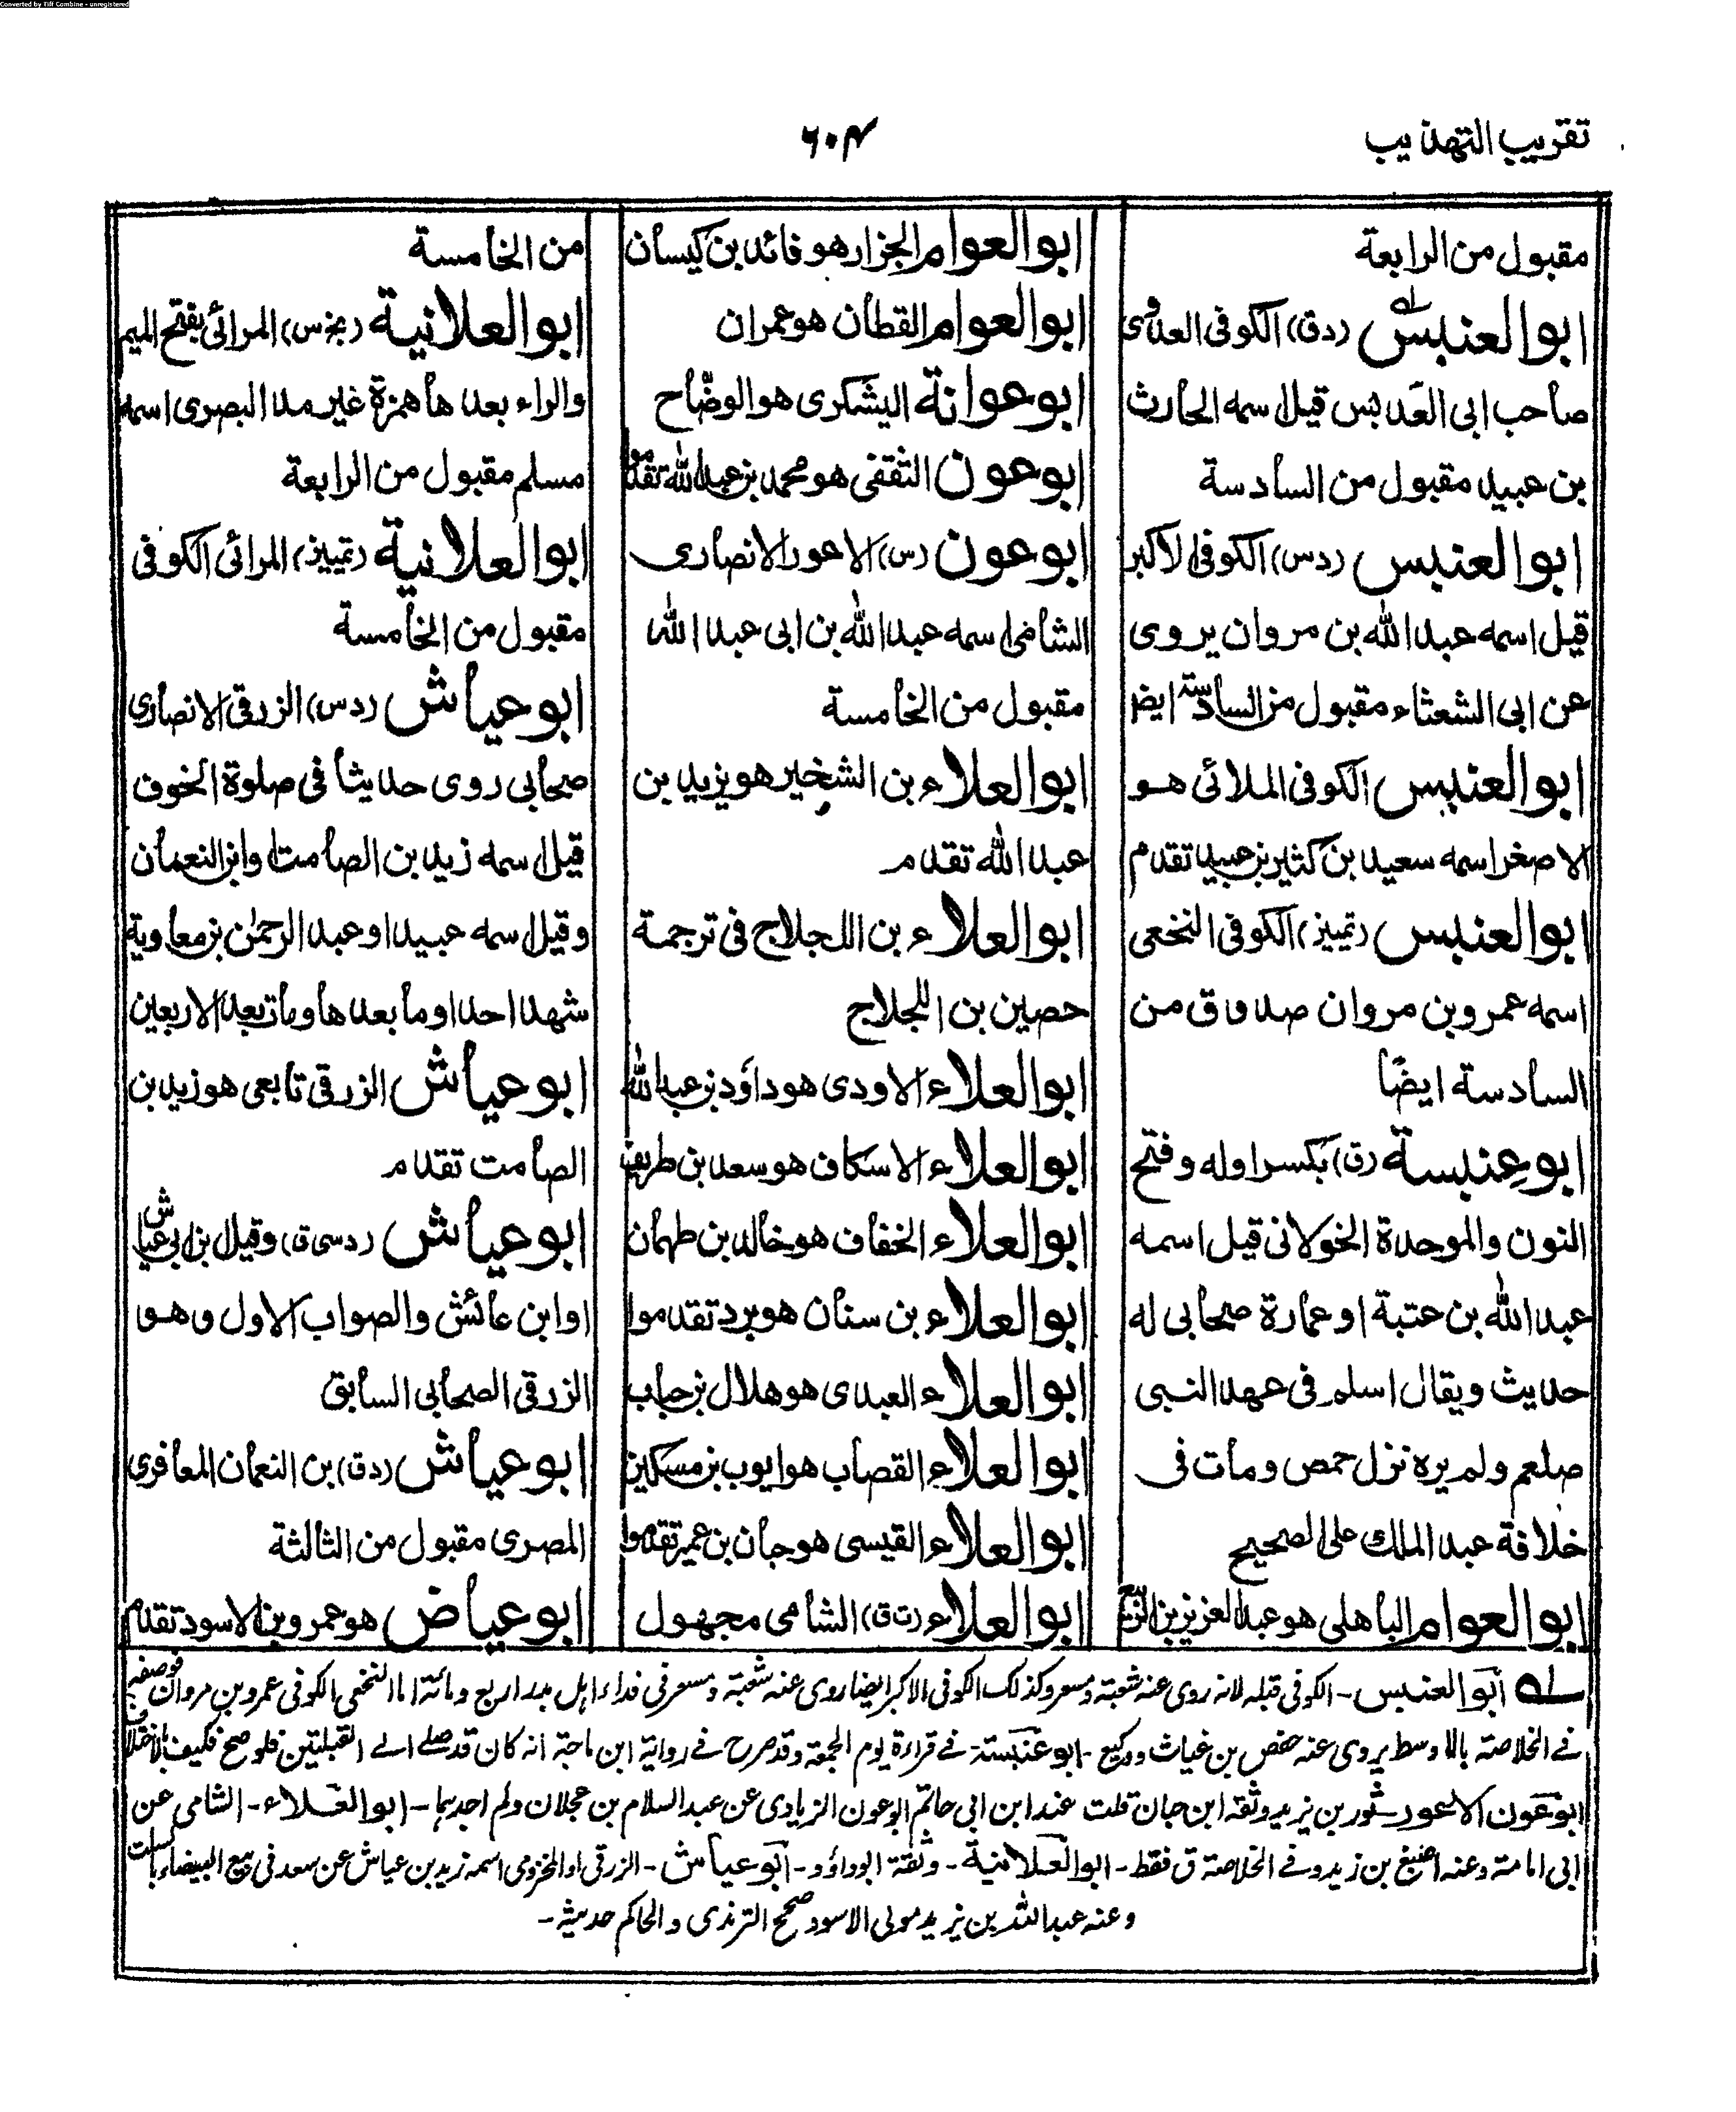 Converted by Tiff Combine - unregistered
تقريب التهذيب
۶۰۴
مقبول من الرابعة
ابوالعنبس (دق) الكوفى العدوى
صاحب ابى العدبس قيل اسمه الحارث
بن عبيد مقبول من السادسة
ابوالعنبس (دس) الكوفى الاكبر
قيل اسمه عبد الله بن مروان يروى
عن ابى الشعثاء مقبول من السادسة ايضا
ابوالعنبس الكوفى الملائى هو
الاصغر اسمه سعيد بن كثير بن عبيد تقدم
ابوالعنبس (تمييز) الكوفى النخعى
اسمه عمرو بن مروان صدوق من
السادسة ايضًا
ابوعِنبسة (ق) بكسر اوله وفتح
النون والموحدة الخولانى قيل اسمه
عبد الله بن عتبة او عمارة صحابى له
حديث ويقال اسلم فى عهد النبى
صلعم ولم يره نزل حمص ومات فى
خلافة عبد الملك على الصحيح
ابوالعوام الباهلى هو عبد العزيز بن الربيع
ابوالعوام الجزار هو فائد بن كيسان
ابوالعوام القطان هو عمران
ابوعوانة اليشكرى هو الوضّاح
ابوعون الثقفى هو محمد بن عبد الله تقدموا
ابوعون (س) الاعور الانصارى
الشامى اسمه عبد الله بن ابى عبد الله
مقبول من الخامسة
ابوالعلاء بن الشخير هو يزيد بن
عبد الله تقدم
ابوالعلاء بن اللجلاج فى ترجمة
حصين بن اللجلاج
ابوالعلاء الاودى هو داؤد بن عبد الله
ابوالعلاء الاسكاف هو سعد بن طريف
ابوالعلاء الخفاف هو خالد بن طهمان
ابوالعلاء بن سنان هو برد تقدموا
ابوالعلاء العبدى هو هلال بن خباب
ابوالعلاء القصاب هو ايوب بن مسكين
ابوالعلاء القيسى هو حبان بن عمير تقدموا
ابوالعلاء (ت ق) الشامى مجهول
من الخامسة
ابوالعلانية (بخ س) المرائى بفتح الميم
والراء بعدها همزة غير مد البصرى اسمه
مسلم مقبول من الرابعة
ابوالعلانية (تمييز) المرائى الكوفى
مقبول من الخامسة
ابوعياش (دس) الزرقى الانصارى
صحابى روى حديثا فى صلوة الخوف
قيل اسمه زيد بن الصامت او ابن النعمان
وقيل اسمه عبيد او عبد الرحمٰن بن معاوية
شهد احدا وما بعدها ومات بعد الاربعين
ابوعياش الزرقى تابعى هو زيد بن
الصامت تقدم
ابوعياش (دسى ق) وقيل بن ابى عياش
اوابن عائش والصواب الاول وهو
الزرقى الصحابى السابق
ابوعياش (دق) بن النعمان المعافرى
المصرى مقبول من الثالثة
ابوعياض هو عمرو بن الاسود تقدم
ــه ابوالعنبس - الكوفى قبله لانه روى عنه شعبة ومسعر وكذلك الكوفى الاكبر ايضا روى عنه شعبة ومسعر فى فداء اهل بدر اربع ومائة اما النخعى الكوفى عمرو بن مروان فوصفه
فى الخلاصة بالاوسط يروى عنه حفص بن غياث ووكيع - ابوعنبسة - فى قراءة يوم الجمعة وقد صرح فى رواية ابن ماجة انه كان قد صلى الى القبلتين فلو صح فكيف بالاختلاف
ابوعون الاعور - ثور بن يزيد وثقه ابن حبان قلت عند ابن ابى حاتم ابوعون الزيادى عن عبد السلام بن عجلان ولم اجدهما - ابوالعلاء - الشامى عن
ابى امامة وعنه اصبغ بن زيد وفى الخلاصة ق فقط - ابوالعلانية - وثقة ابوداؤد - ابوعياش - الزرقى او المخزومى اسمه زيد بن عياش عن سعد فى بيع البيضاء بالسلت
وعنه عبد الله بن يزيد مولى الاسود صحح الترمذى والحاكم حديثه -